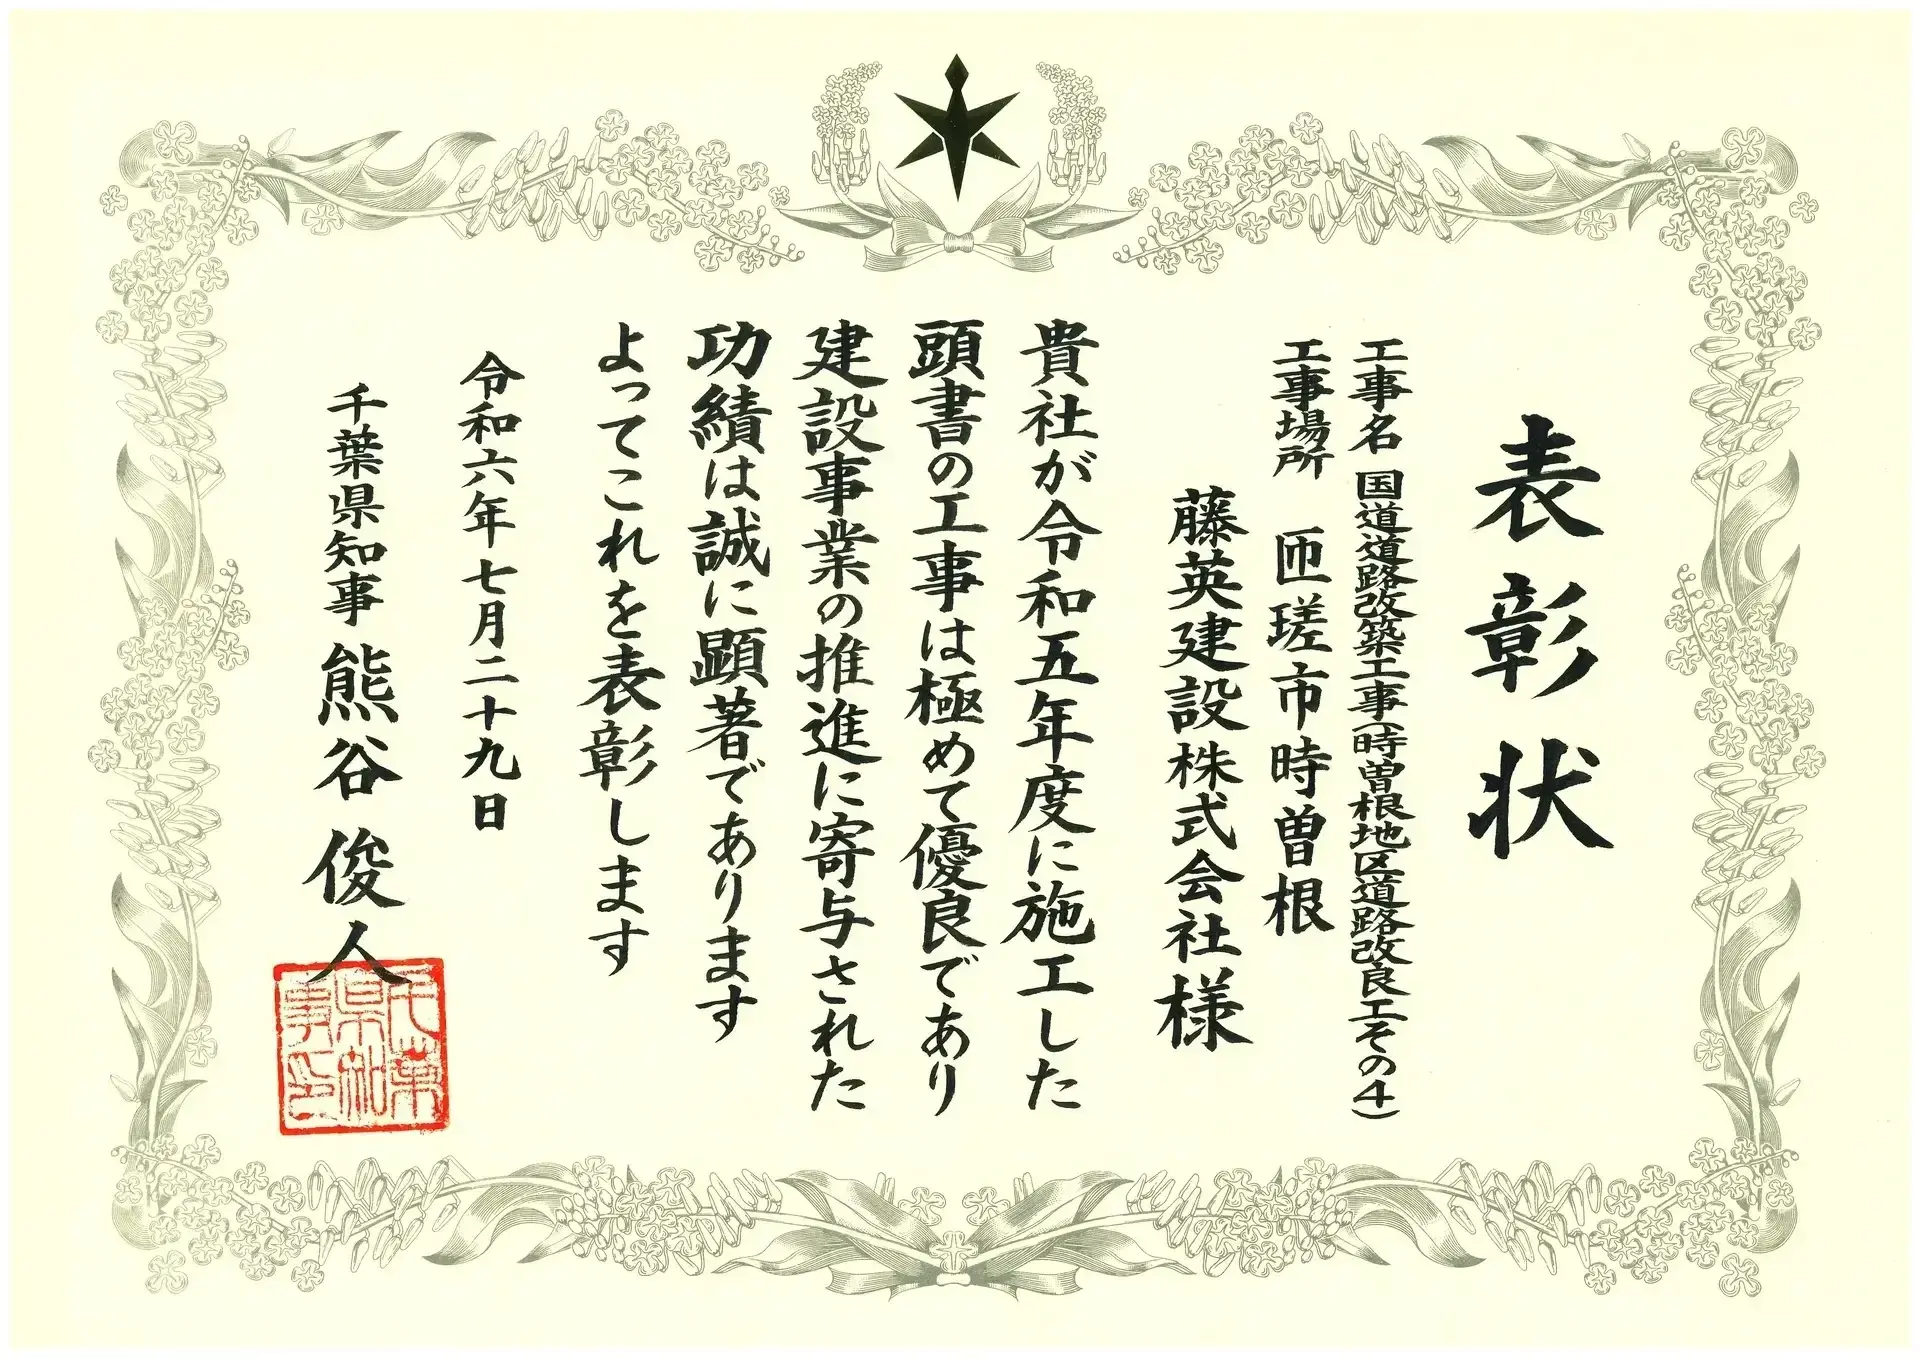 表彰状
工事名 国道道路改築工事(時曽根地区道路改良工その4)
工事場所 匝瑳市時曽根
藤英建設株式会社様
貴社が令和五年度に施工した
頭書の工事は極めて優良であり
建設事業の推進に寄与された
功績は誠に顕著であります
よってこれを表彰します
令和六年七月二十九日
千葉県知事 熊谷俊人
千葉
県知
事印